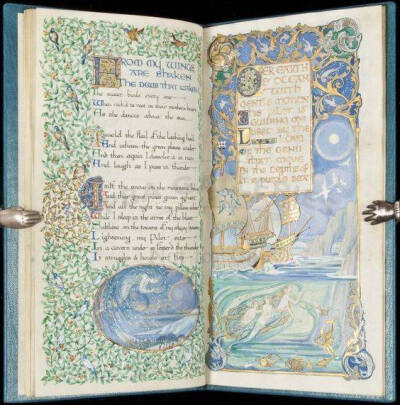 FROM MY WINGS
ARE SHAKEN
THE DEWS THAT WAKEN
The sweet buds every one
When rock'd to rest on their mother's breast
As she dances about the sun
I wield the flail of the lashing hail
And whiten the green plains under
And then again I dissolve it in rain
And laugh as I pass in thunder
I sift the snow on the mountains below
And their great pines groan aghast
And all the night 'tis my pillow white
While I sleep in the arms of the blast
Sublime on the towers of my skiey bowers
Lightning my Pilot sits
In a cavern under is fetter'd the thunder
It struggles & howls at fits
OVER EARTH
& OCEAN
WITH
GENTLE MOTION
THIS PILOT IS
GUIDING ME
LURED BY THE
LOVE
OF THE GENII
THAT MOVE
IN THE DEPTHS OF
THE PURPLE SEA